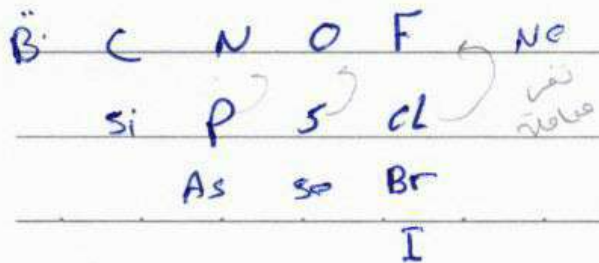 B C N O F Ne
Si P S Cl نفس
معاملة
As Se Br
I